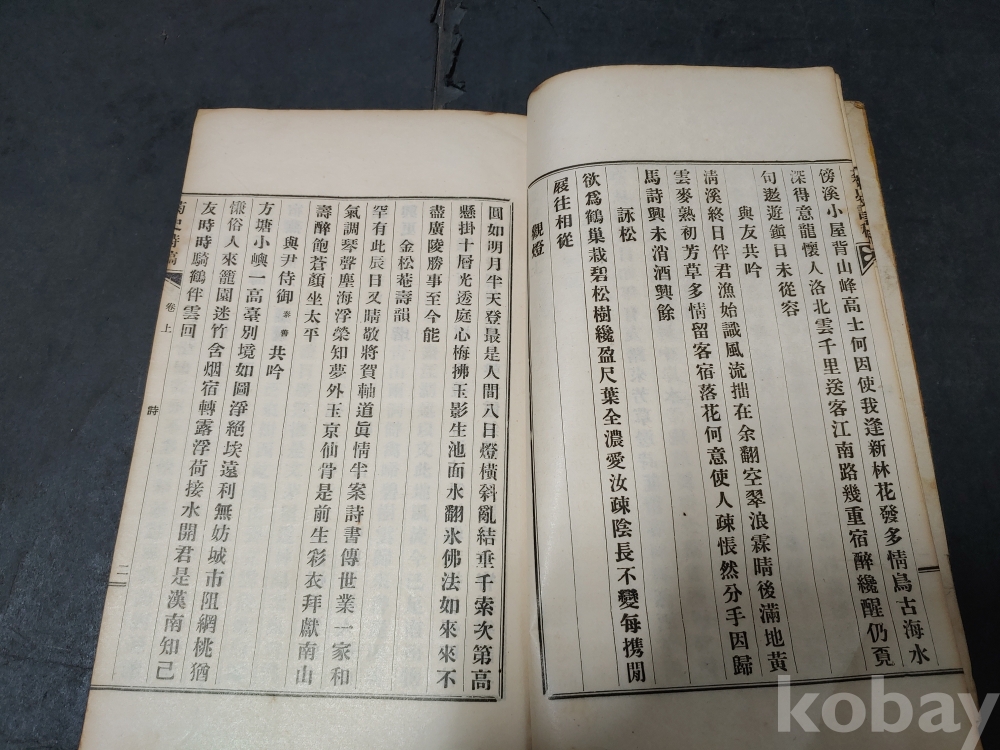 傍溪小屋背山峰高士何因使我逢新林花發多情鳥古海水
深得意龍懷人洛北雲千里送客江南路幾重宿醉纔醒仍覓
句遨遊鎭日未從容
與友共吟
淸溪終日伴君漁始識風流拙在余翻空翠浪霖晴後滿地黃
雲麥熟初芳草多情留客宿落花何意使人疎悵然分手因歸
馬詩興未消酒興餘
詠松
欲爲鶴巢栽碧松樹纔盈尺葉全濃愛汝疎陰長不變每携閒
屐往相從
觀燈
圓如明月半天登最是人間八日燈橫斜亂結垂千索次第高
懸掛十層光透庭心梅拂玉影生池面水翻氷佛法如來來不
盡廣陵勝事至今能
金松菴壽韻
罕有此辰日又晴敬將賀軸道眞情半案詩書傳世業一家和
氣調琴聲塵海浮榮知夢外玉京仙骨是前生彩衣拜獻南山
壽醉飽蒼顏坐太平
與尹侍御 共吟
方塘小嶼一高臺別境如圖淨絶埃遠利無妨城市阻網桃猶
慊俗人來籠園迷竹舍烟宿轉露浮荷接水開君是漢南知己
友時時騎鶴伴雲回
史詩稿 卷上 詩 二
kobay